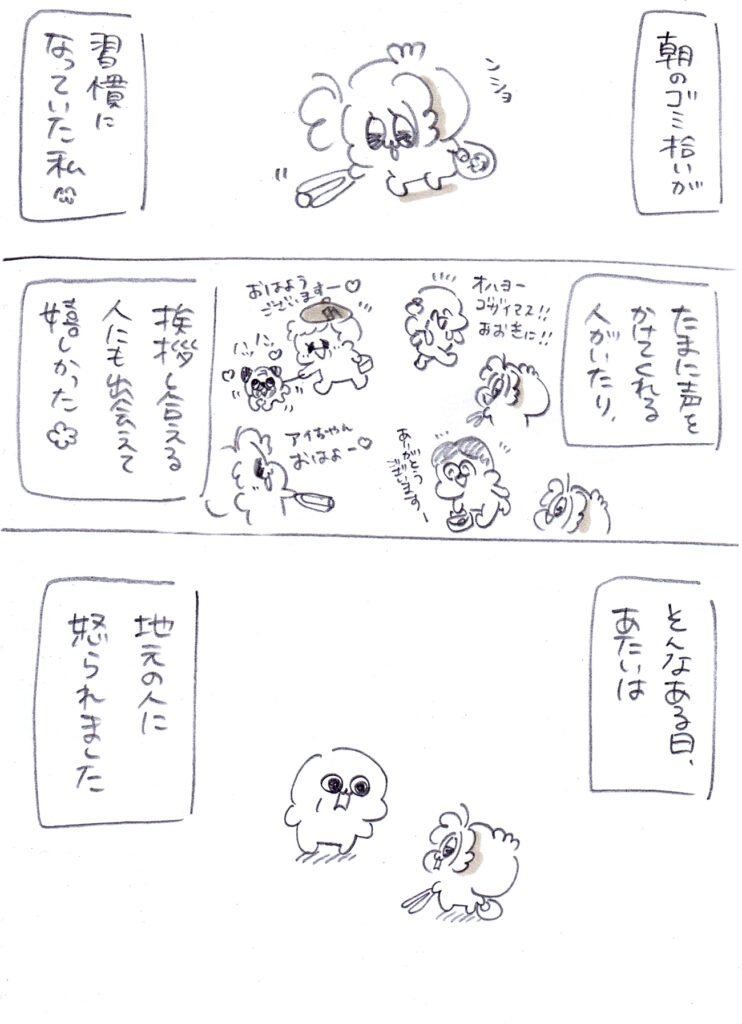 朝のゴミ拾いが
ンショ
習慣に
なっていた私
たまに声を
かけてくれる
人がいたり、
オハヨー
ゴザイマス!!
おおきに!!
ありがとう
ございますー
おはよう
ございますー♡
ハッハッ
アイちゃん
おはよー♡
挨拶し合える
人にも出会えて
嬉しかった
そんなある日、
あたいは
地元の人に
怒られました